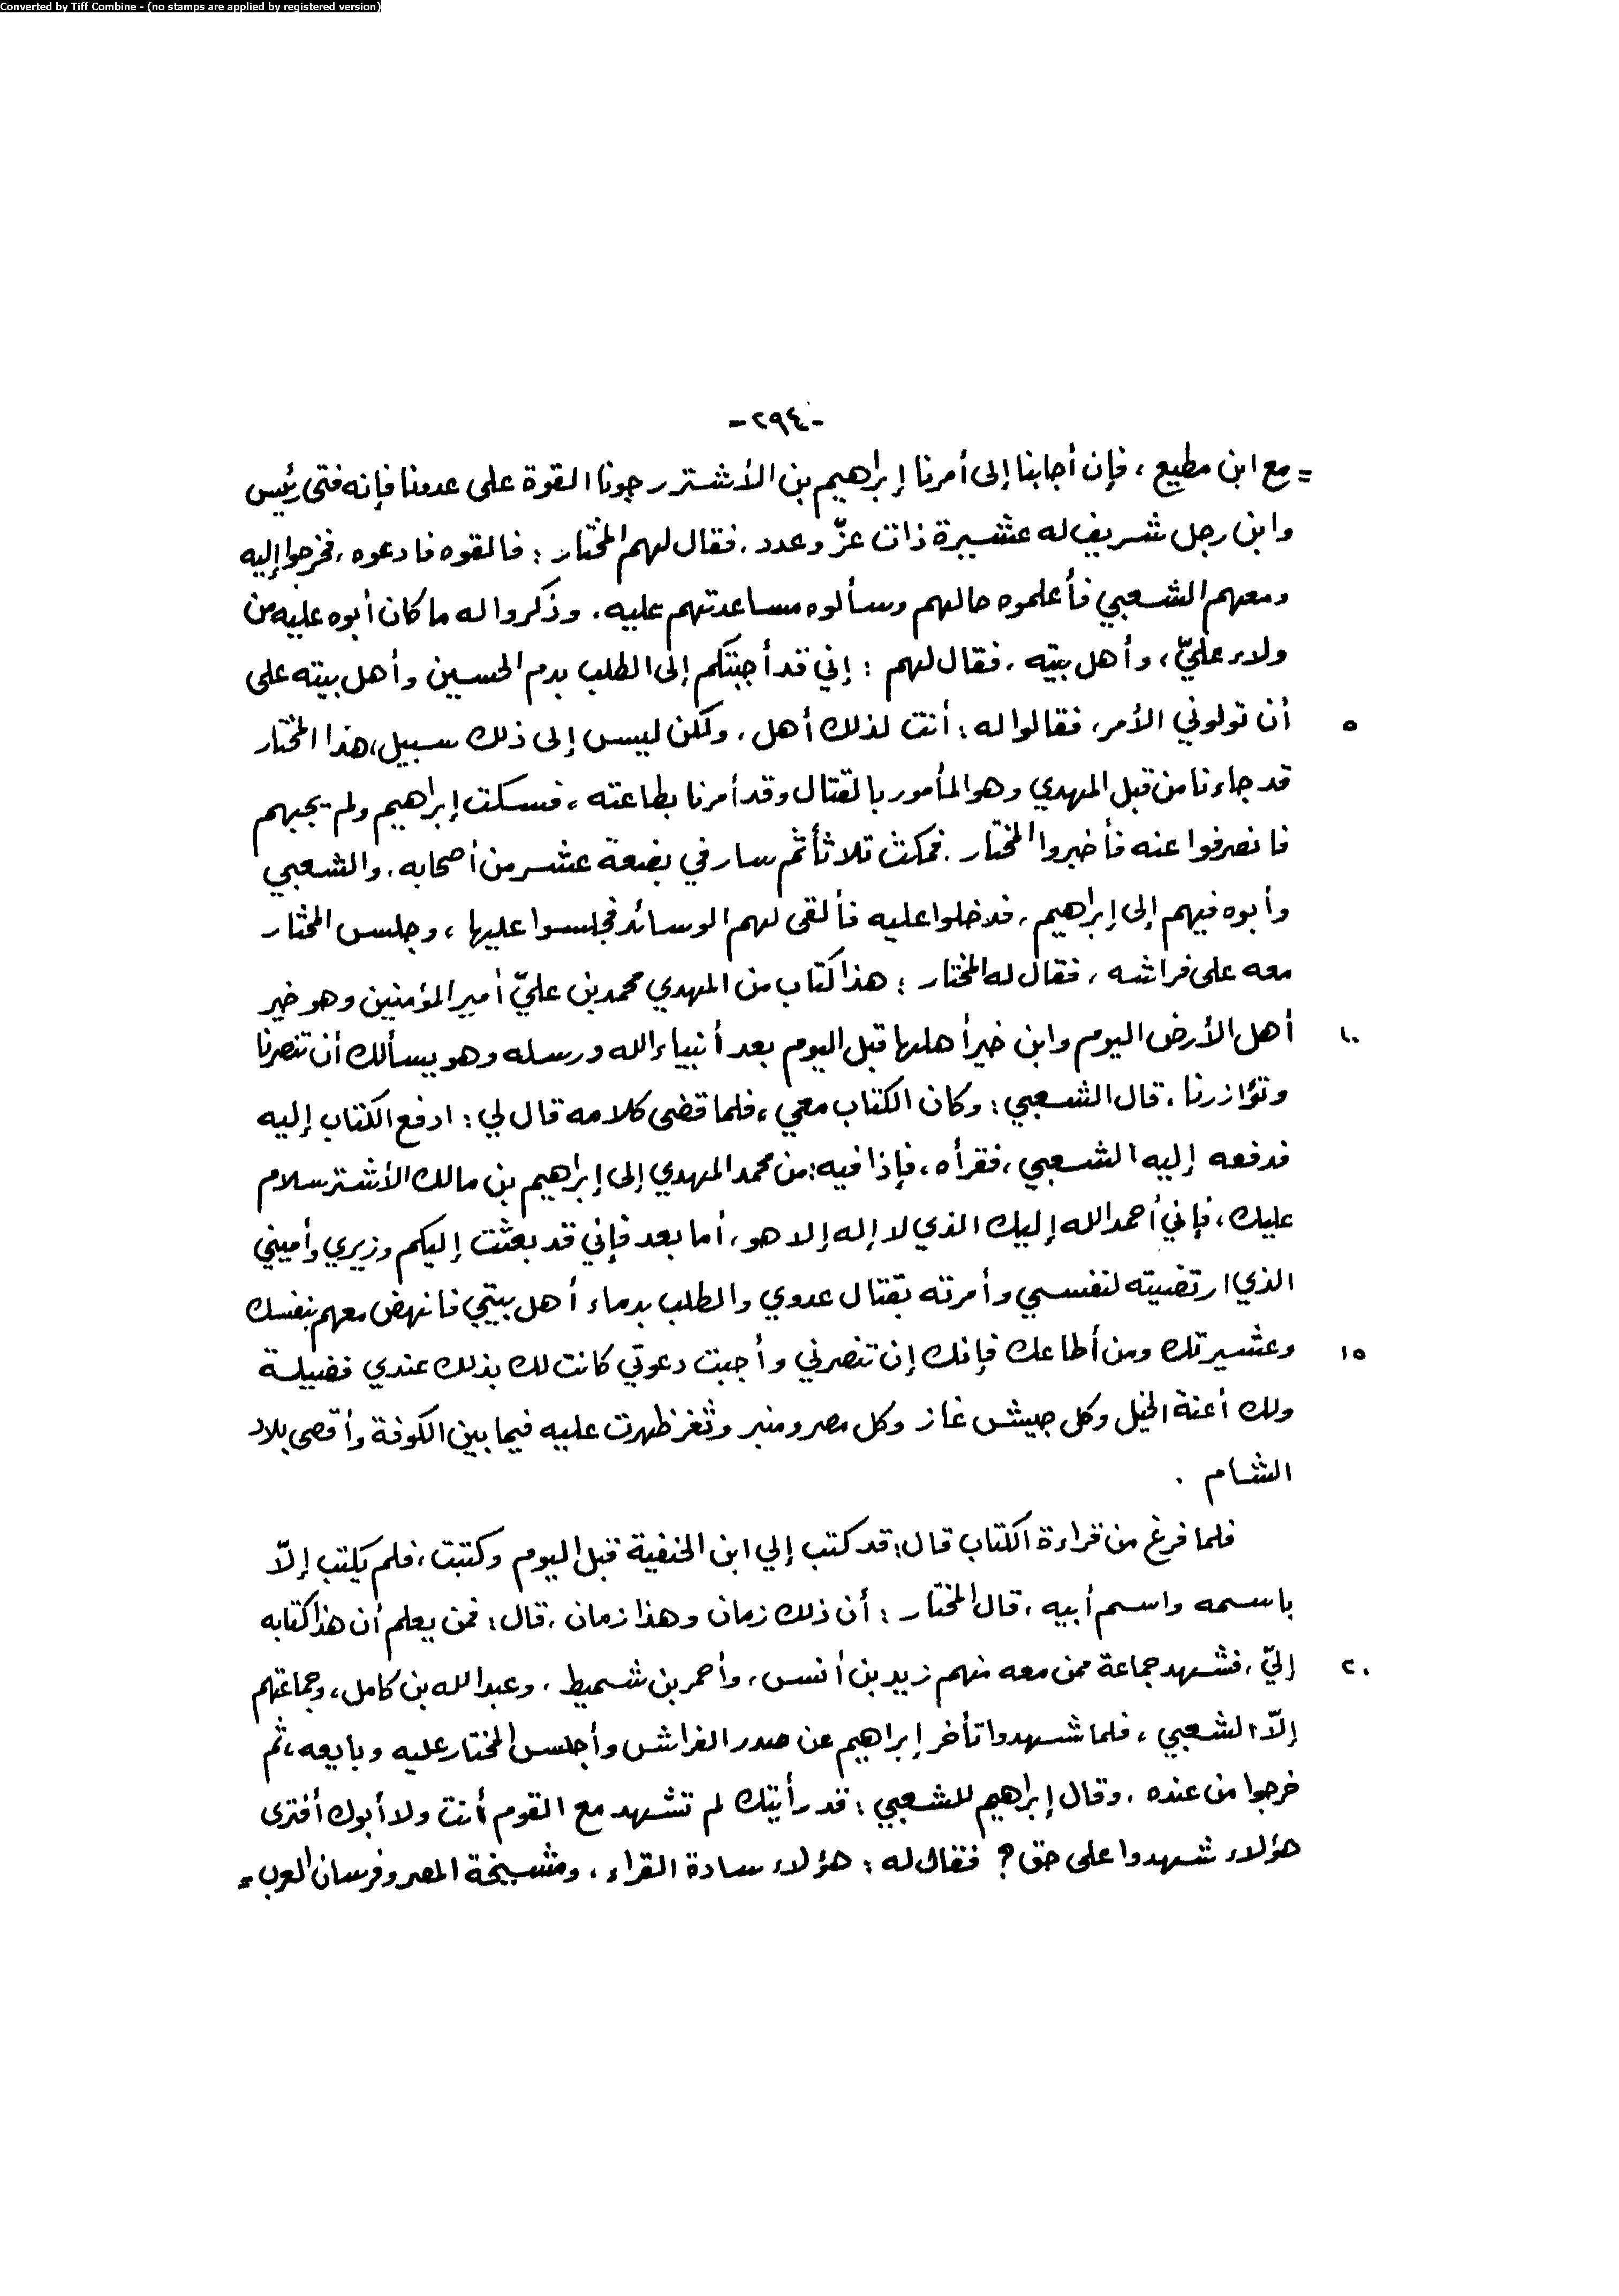 Converted by Tiff Combine - (no stamps are applied by registered version)
-٢٩٤-
= مع ابن مطيع ، فإن أجابنا إلى أمرنا إبراهيم بن الأشتر رجونا القوة على عدونا فإنه فتى رئيس
وابن رجل شريف له عشيرة ذات عزّ وعدد . فقال لهم المختار : فالقوه فادعوه ، فخرجوا إليه
ومعهم الشعبي فأعلموه حالهم وسألوه مساعدتهم عليه . وذكروا له ما كان أبوه عليه من
ولاء عليّ ، وأهل بيته . فقال لهم : إني قد أجبتكم إلى الطلب بدم الحسين وأهل بيته على
٥ أن تولوني الأمر ، فقالوا له : أنت لذلك أهل ، ولكن ليس إلى ذلك سبيل ، هذا المختار
قد جاءنا من قبل المهدي وهو المأمور بالقتال وقد أمرنا بطاعته ، فسكت إبراهيم ولم يجبهم
فانصرفوا عنه فأخبروا المختار . فمكث ثلاثاً ثم سار في بضعة عشر من أصحابه . والشعبي
وأبوه فيهم إلى إبراهيم ، فدخلوا عليه فألقى لهم الوسائد فجلسوا عليها ، وجلس المختار
معه على فراشه ، فقال له المختار : هذا كتاب من المهدي محمد بن عليّ أمير المؤمنين وهو خير
١٠ أهل الأرض اليوم وابن خير أهلها قبل اليوم بعد أنبياء الله ورسله وهو يسألك أن تنصرنا
وتؤازرنا . قال الشعبي : وكان الكتاب معي ، فلما قضى كلامه قال لي : ادفع الكتاب إليه
فدفعه إليه الشعبي ، فقرأه ، فإذا فيه : من محمد المهدي إلى إبراهيم بن مالك الأشتر سلام
عليك ، فإني أحمد الله إليك الذي لا إله إلا هو ، أما بعد فإني قد بعثت إليكم وزيري وأميني
الذي ارتضيته لنفسي وأمرته بقتال عدوي والطلب بدماء أهل بيتي فانهض معهم بنفسك
١٥ وعشيرتك ومن أطاعك فإنك إن تنصرني وأجبت دعوتي كانت لك بذلك عندي فضيلة
ولك أعنة الخيل وكل جيش غاز وكل مصر ومنبر وثغر ظهرت عليه فيما بين الكوفة وأقصى بلاد
الشام .
فلما فرغ من قراءة الكتاب قال : قد كتب إلي ابن الحنفية قبل اليوم وكتبت ، فلم يكتب إلّا
باسمه واسم أبيه ، قال المختار : أن ذلك زمان وهذا زمان . قال : فمن يعلم أن هذا كتابه
٢٠ إليّ ، فشهد جماعة ممن معه منهم زيد بن أنس ، وأحمر بن شميط ، وعبد الله بن كامل ، وجماعتهم
إلّا الشعبي ، فلما شهدوا تأخر إبراهيم عن صدر الفراش وأجلس المختار عليه وبايعه ، ثم
خرجوا من عنده . وقال إبراهيم للشعبي : قد رأيتك لم تشهد مع القوم أنت ولا أبوك أفترى
هؤلاء شهدوا على حق ؟ فقال له : هؤلاء سادة القراء ، ومشيخة المصر وفرسان العرب =